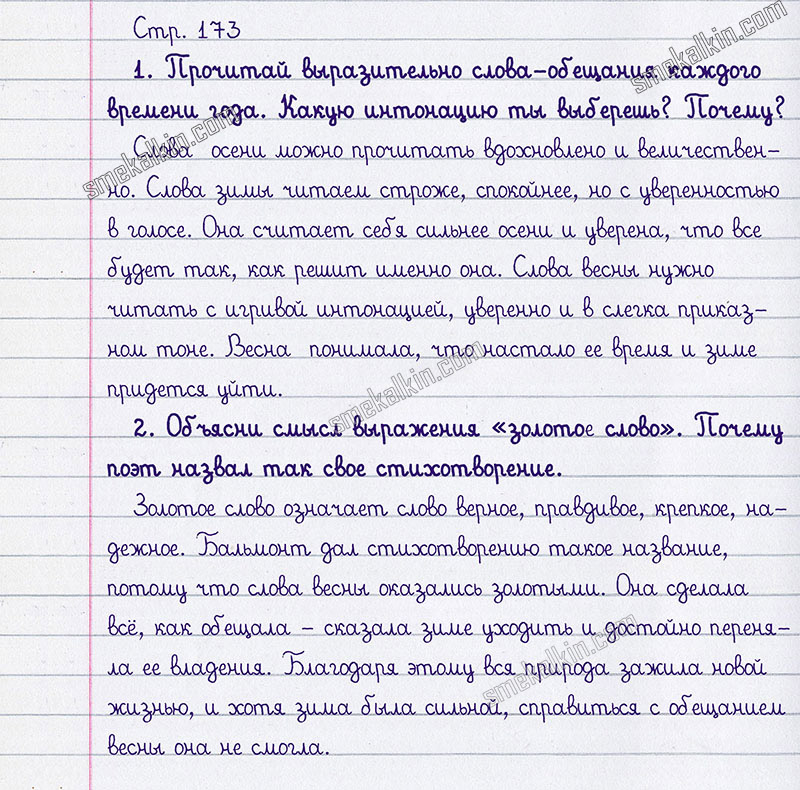 Стр. 173
1. Прочитай выразительно слова-обещания каждого
времени года. Какую интонацию ты выберешь? Почему?
Слова осени можно прочитать вдохновлено и величествен-
но. Слова зимы читаем строже, спокойнее, но с уверенностью
в голосе. Она считает себя сильнее осени и уверена, что все
будет так, как решит именно она. Слова весны нужно
читать с игривой интонацией, уверенно и в слегка приказ-
ном тоне. Весна понимала, что настало ее время и зиме
придется уйти.
2. Объясни смысл выражения «золотое слово». Почему
поэт назвал так свое стихотворение.
Золотое слово означает слово верное, правдивое, крепкое, на-
дежное. Бальмонт дал стихотворению такое название,
потому что слова весны оказались золотыми. Она сделала
всё, как обещала – сказала зиме уходить и достойно переня-
ла ее владения. Благодаря этому вся природа зажила новой
жизнью, и хотя зима была сильной, справиться с обещанием
весны она не смогла.
smekalkin.com
smekalkin.com
smekalkin.com
smekalkin.com